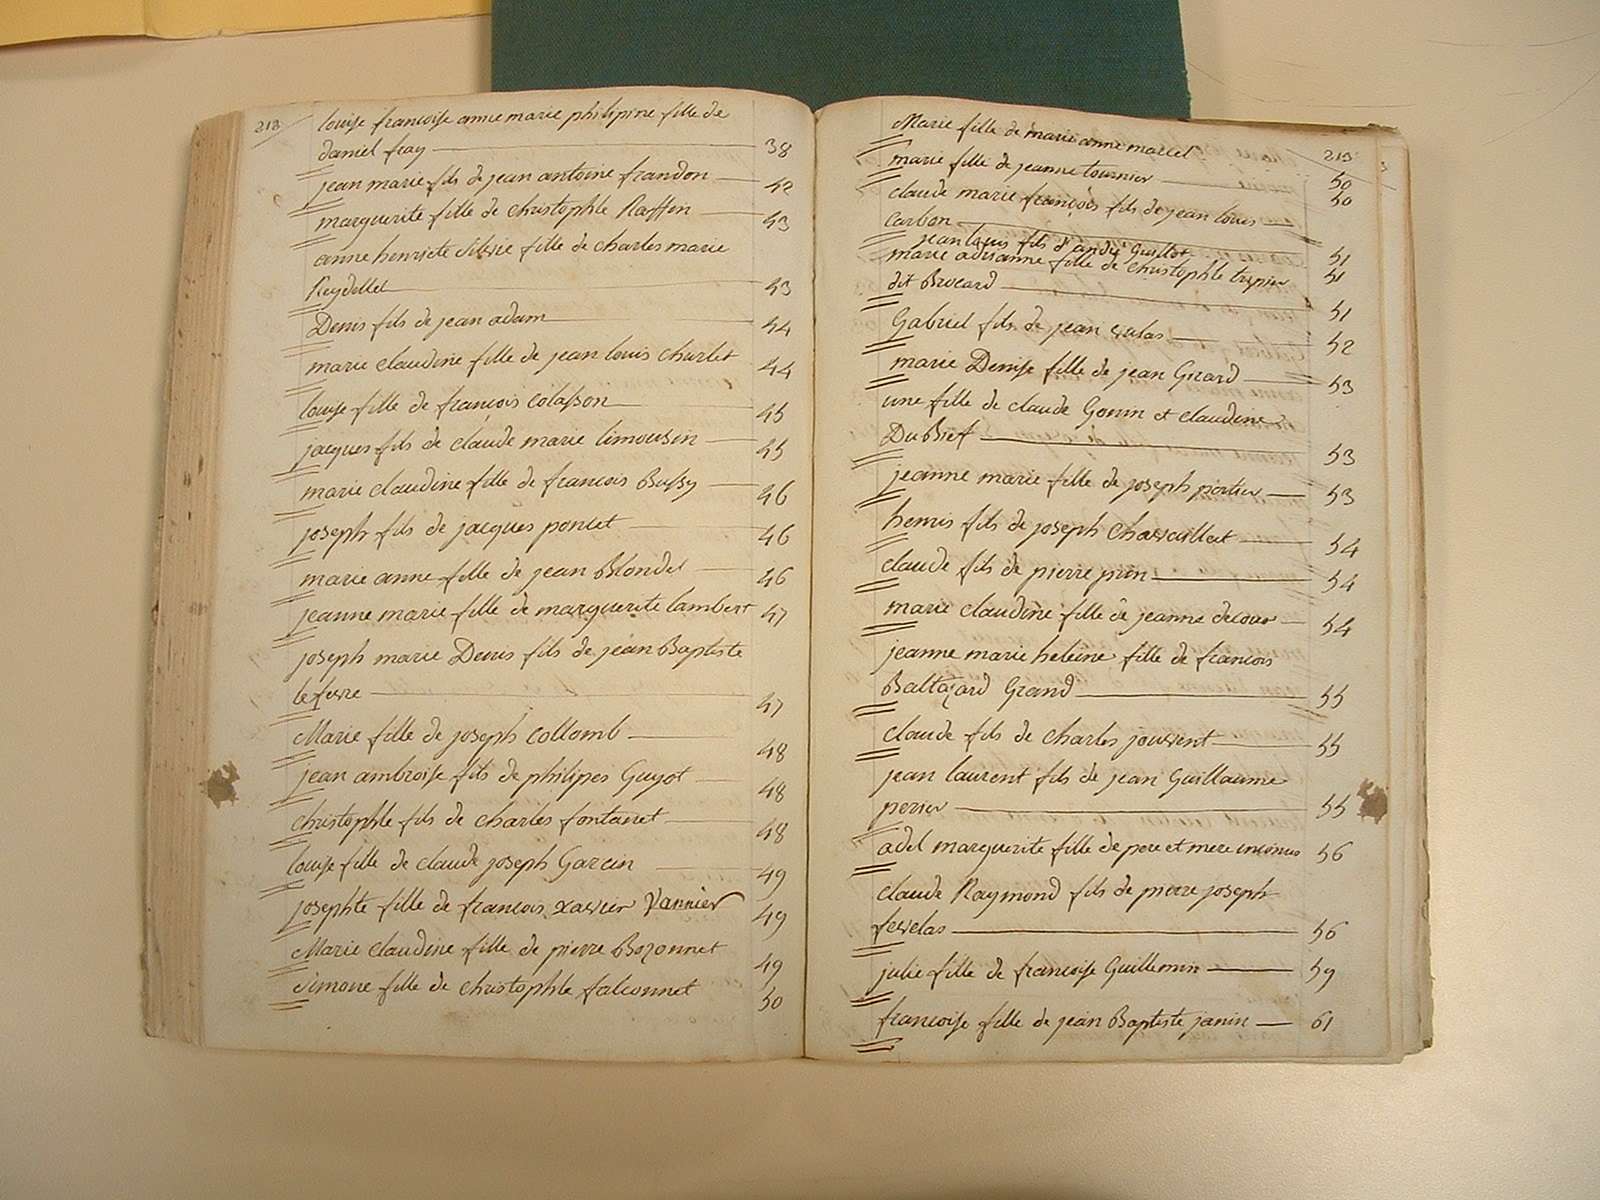 212
louise francoise anne marie philipine fille de
daniel fray 38
jean marie fils de jean antoine frandon 42
marguerite fille de christophle Raffin 43
anne henriete silvie fille de charles marie
Reydellet 43
Denis fils de jean adam 44
marie claudine fille de jean louis churlet 44
louise fille de francois colasson 45
jacques fils de claude marie limousin 45
marie claudine fille de francois Bussy 46
joseph fils de jacques poncet 46
marie anne fille de jean Blondel 46
jeanne marie fille de marguerite lambert 47
joseph marie Denis fils de jean Baptiste
lefevre 47
Marie fille de joseph collomb 48
jean ambroise fils de philipes Guyot 48
christophle fils de charles fontanet 48
louise fille de claude joseph Garcin 49
josephte fille de francois xavier Vannier 49
Marie claudine fille de pierre Bozonnet 49
simone fille de christophle falconnet 50
213
Marie fille de marie anne marcel 50
marie fille de jeanne tournier 50
claude marie françois fils de jean louis
carbon 51
jean louis fils d'andré Guillot 51
marie adrianne fille de christophle trepier
dit Brocard 51
Gabriel fils de jean vulas 52
marie Denise fille de jean Girard 53
une fille de claude Gonin et claudine
DuBief 53
jeanne marie fille de joseph portier 53
henris fils de joseph Chavaillet 54
claude fils de pierre prin 54
marie claudine fille de jeanne decour 54
jeanne marie heleine fille de francois
Baltazard Grand 55
claude fils de charles jouvent 55
jean laurent fils de jean Guillaume
perier 55
adel marguerite fille de pere et mere inconnus 56
claude Raymond fils de pierre joseph
fevelas 56
julie fille de francoise Guillemin 59
francoise fille de jean Baptiste janin 61